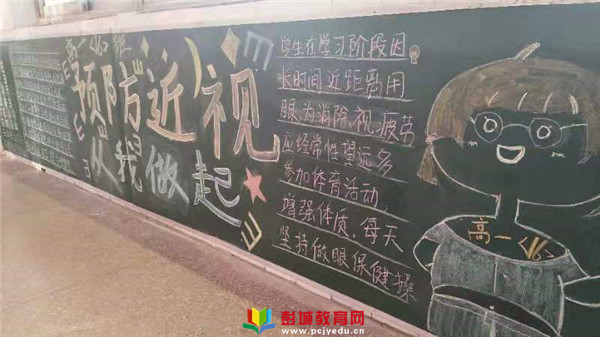 高一<16>班
预防近视
从我做起
学生在学习阶段因
长时间近距离用
眼为消除视疲劳
应经常性望远多
参加体育活动
增强体质，每天
坚持做眼保健操
高一<16>
彭城教育网
www.pcjyedu.cn